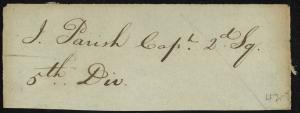 J. Parish Capt. 2d. Sq.
5th. Div.